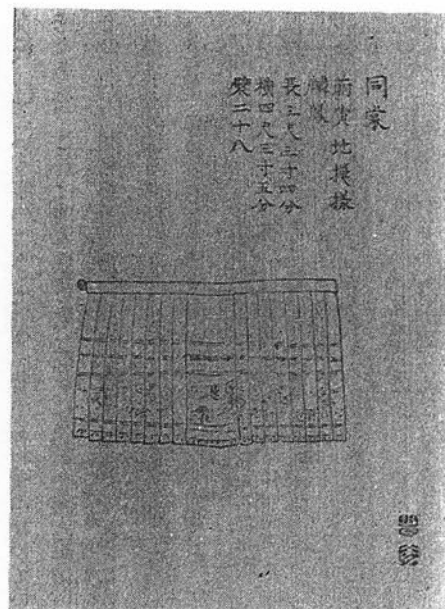 同裳
地模様
長三尺三寸四分
横四尺三寸五分
襞二十八